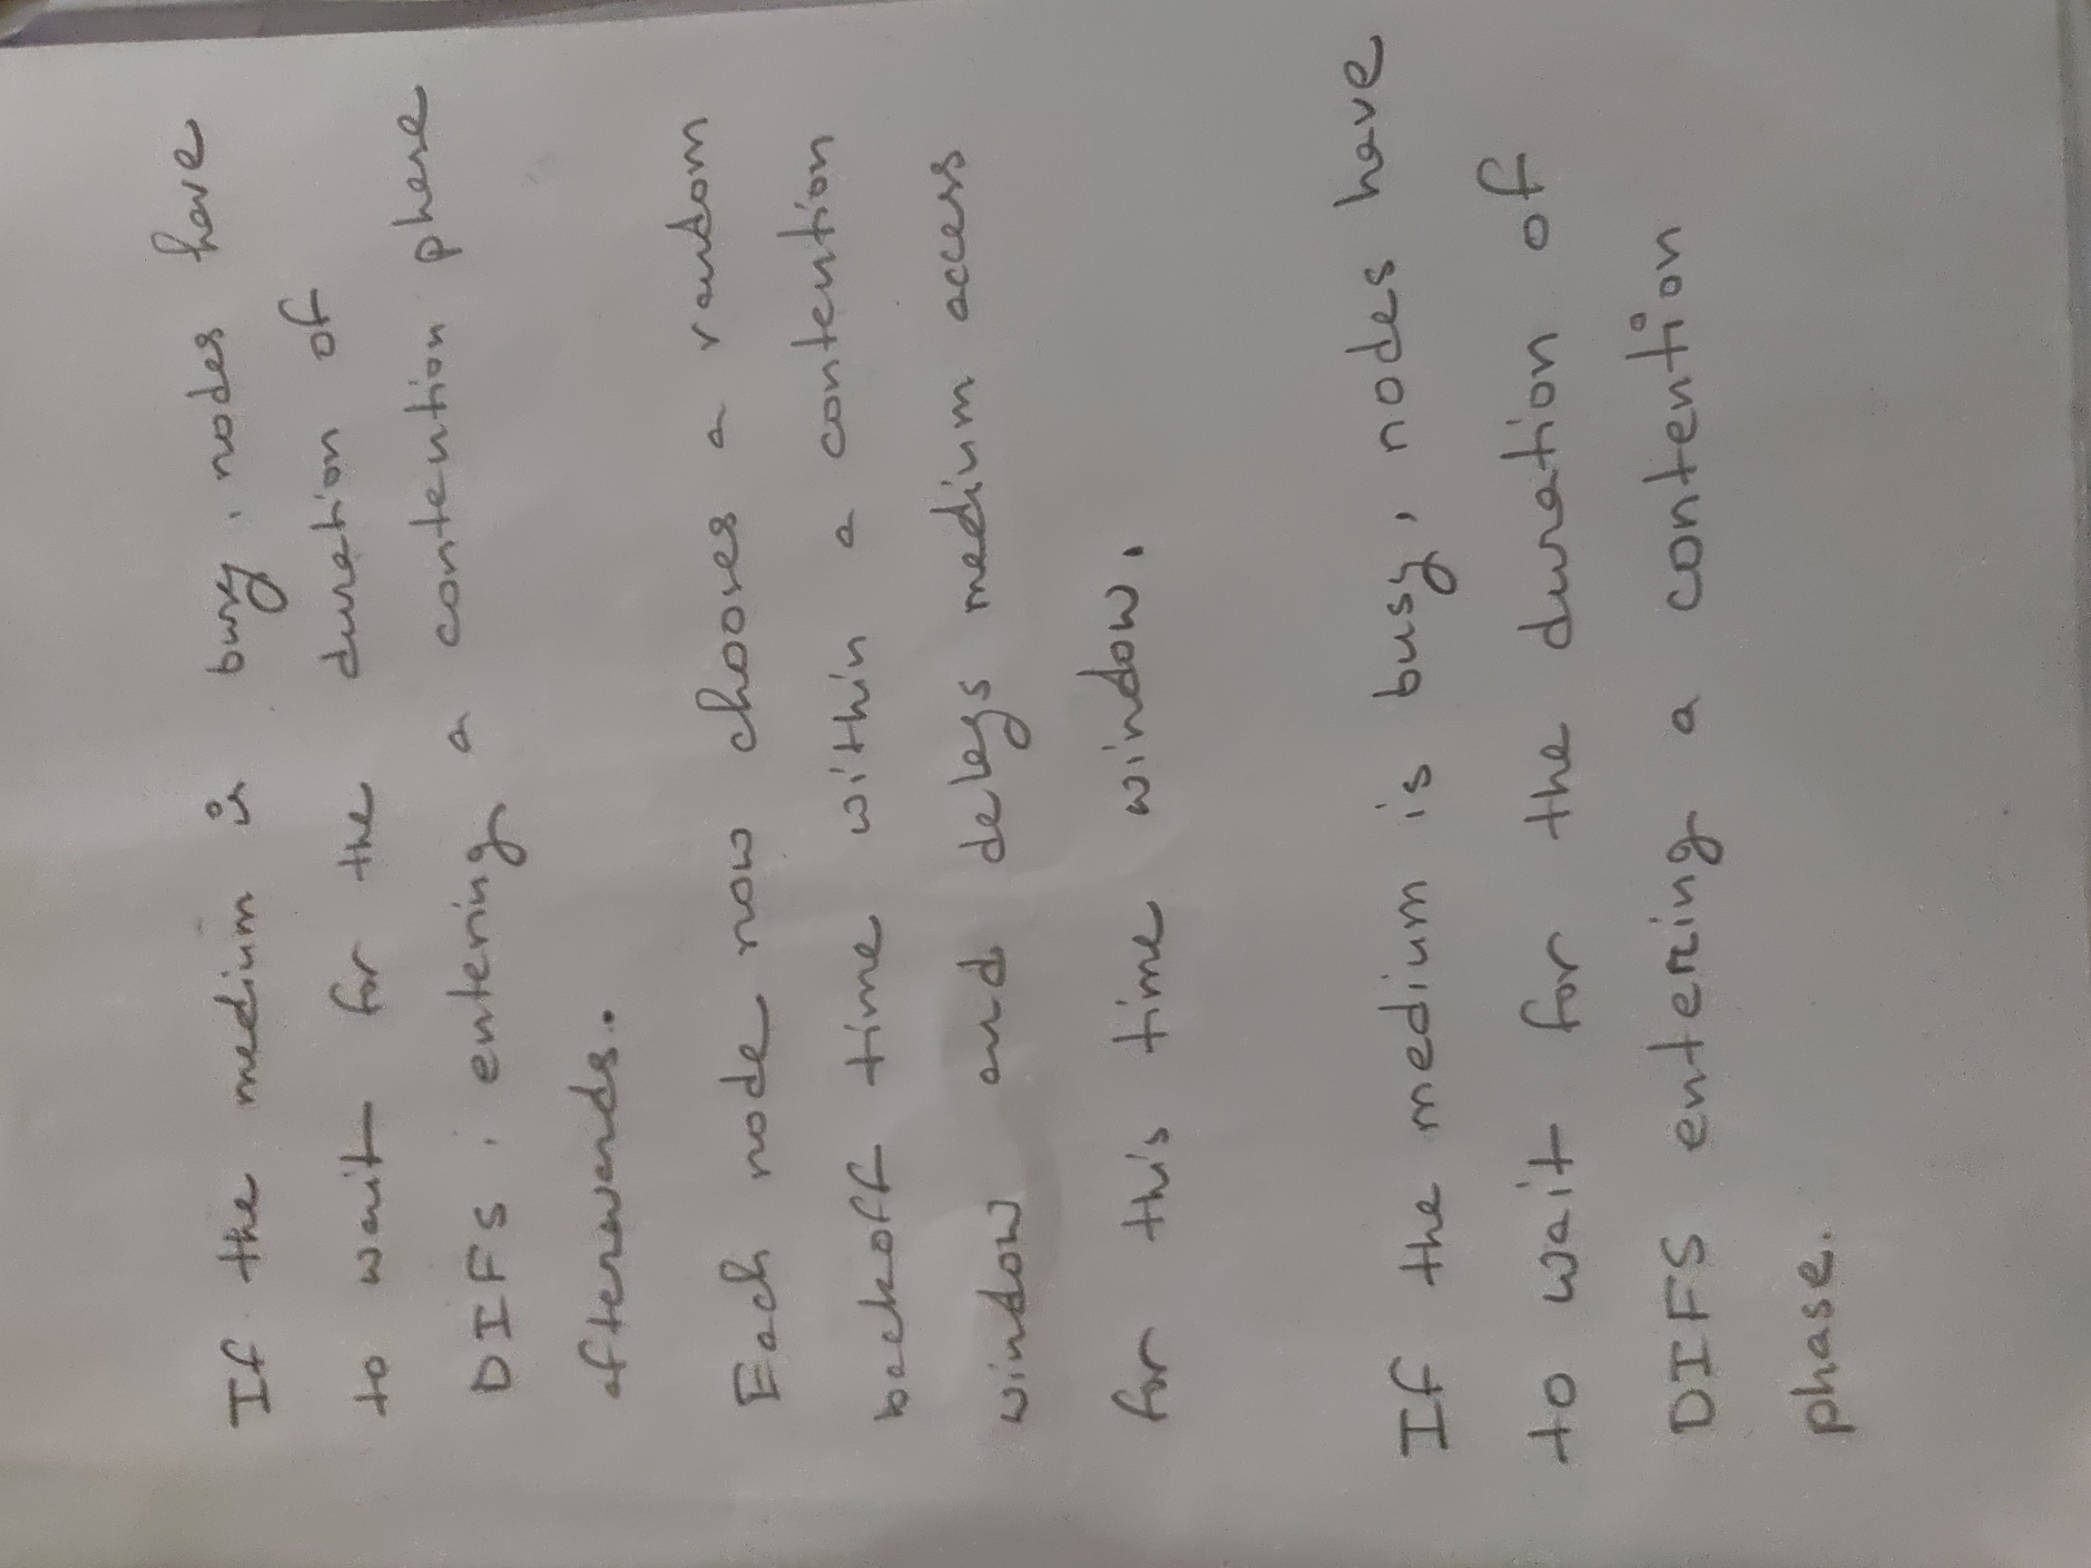 If the medium is busy, nodes have
to wait for the duration of
DIFS, entering a contention phase
afterwards.
Each node now chooses a random
backoff time within a contention
window and delays medium access
for this time window.
If the medium is busy, nodes have
to wait for the duration of
DIFS entering a contention
phase.